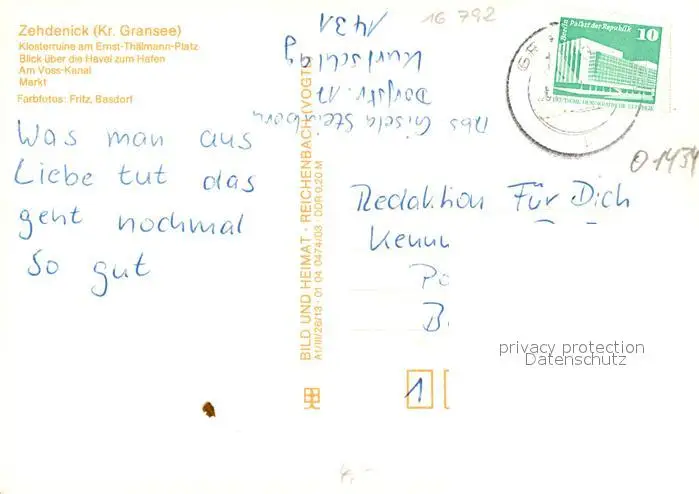 Zehdenick (Kr. Gransee)
Klosterruine am Ernst-Thälmann-Platz
Blick über die Havel zum Hafen
Am Voss-Kanal
Markt
Farbfotos: Fritz, Basdorf
Was man aus
Liebe tut das
geht nochmal
so gut
Abs Gisela
Dorfstr. 17
Kurtschlag
1431
BILD UND HEIMAT · REICHENBACH (VOGTL)
A1/III/26/13 · 01 04 0474/03 · DDR 0,20 M
16 792
Berlin Palast der Republik
10
DEUTSCHE DEMOKRATISCHE REPUBLIK
O 1434
Redaktion Für Dich
Kenn
Po
B
1
privacy protection
Datenschutz
4,-